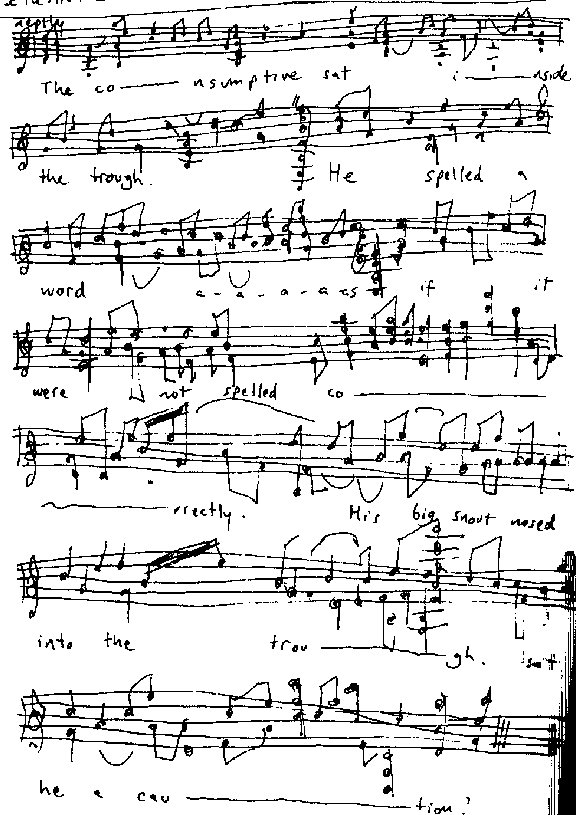 The co——nsumptive sat i——nside
the trough. He spelled a
word a-a-a-a-as if it
were not spelled co——
——rrectly. His big snout nosed
into the trou——gh. Isn't
he a cau——tion?